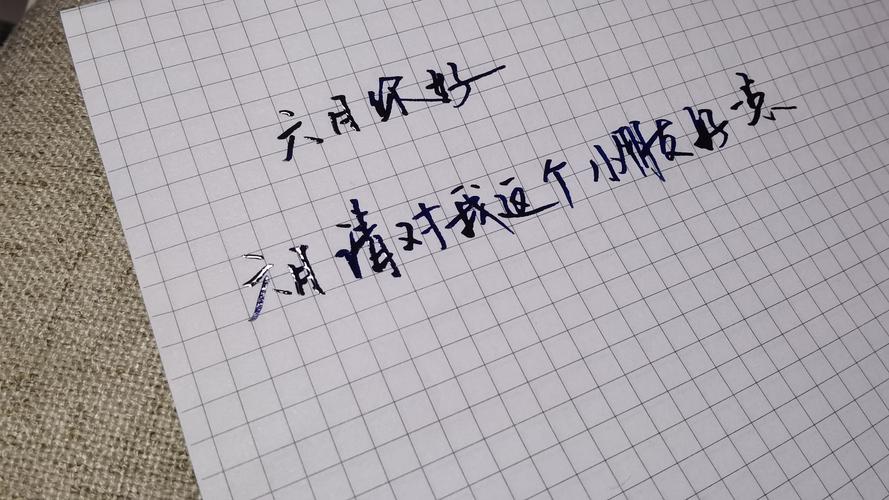 六月你好
六月请对我这个小朋友好一点